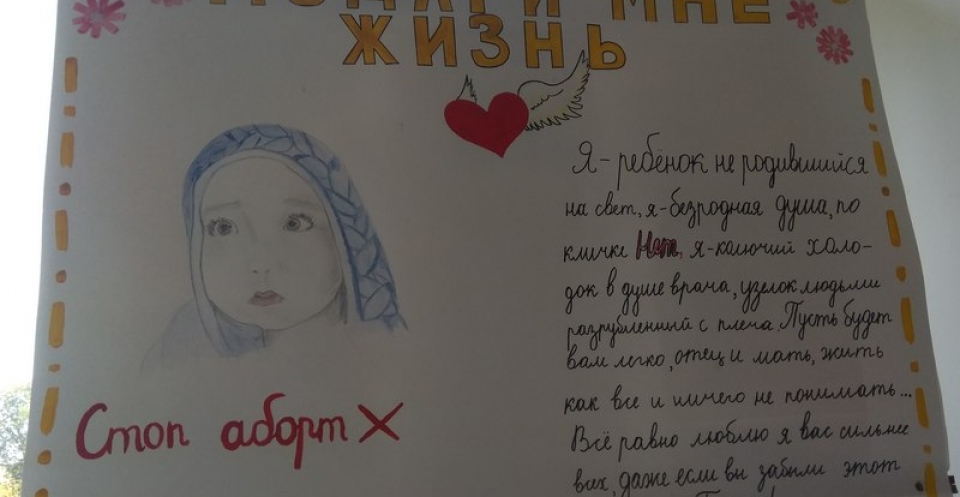 ПОДАРИ МНЕ
ЖИЗНЬ
Я-ребёнок не родившийся
на свет, я-безродная душа, по
кличке Нет, я-колючий холо-
док в душе врача, узелок людьми
разрубленный с плеча. Пусть будет
вам легко, отец и мать, жить
как все и ничего не понимать...
Всё равно люблю я вас сильнее
всех, даже если вы забыли этот
Стоп аборт X